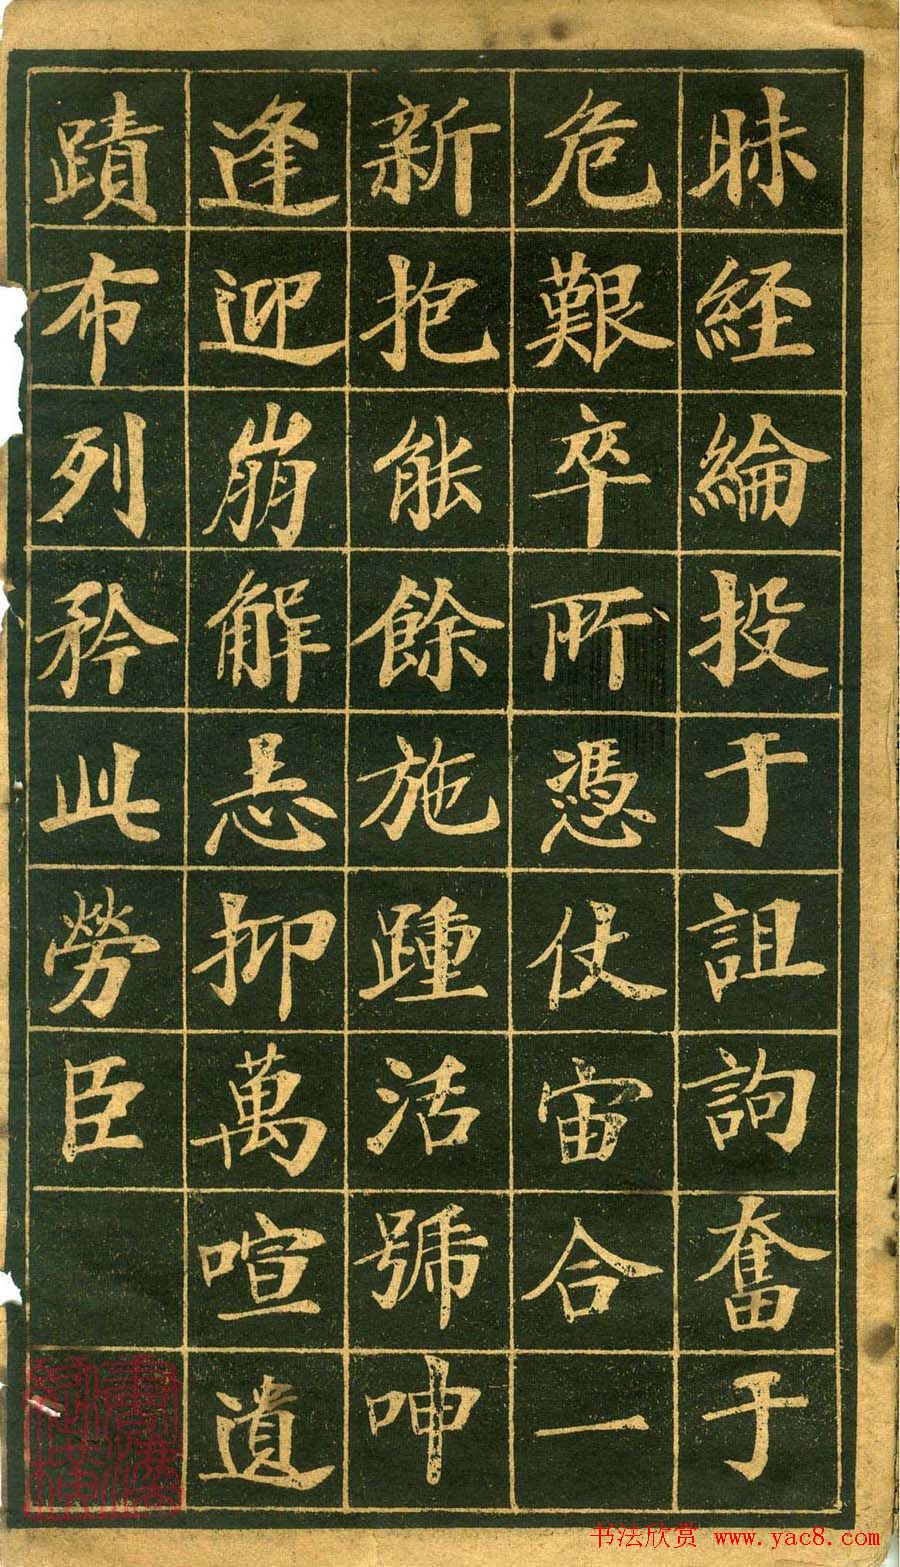 昧經綸投于詛訽奮于
危艱卒所憑仗宙合一
新抱能餘施踵活號呻
逢迎崩解恶抑萬喧遺
蹟布列矜此勞臣
书法欣赏 www.yac8.com